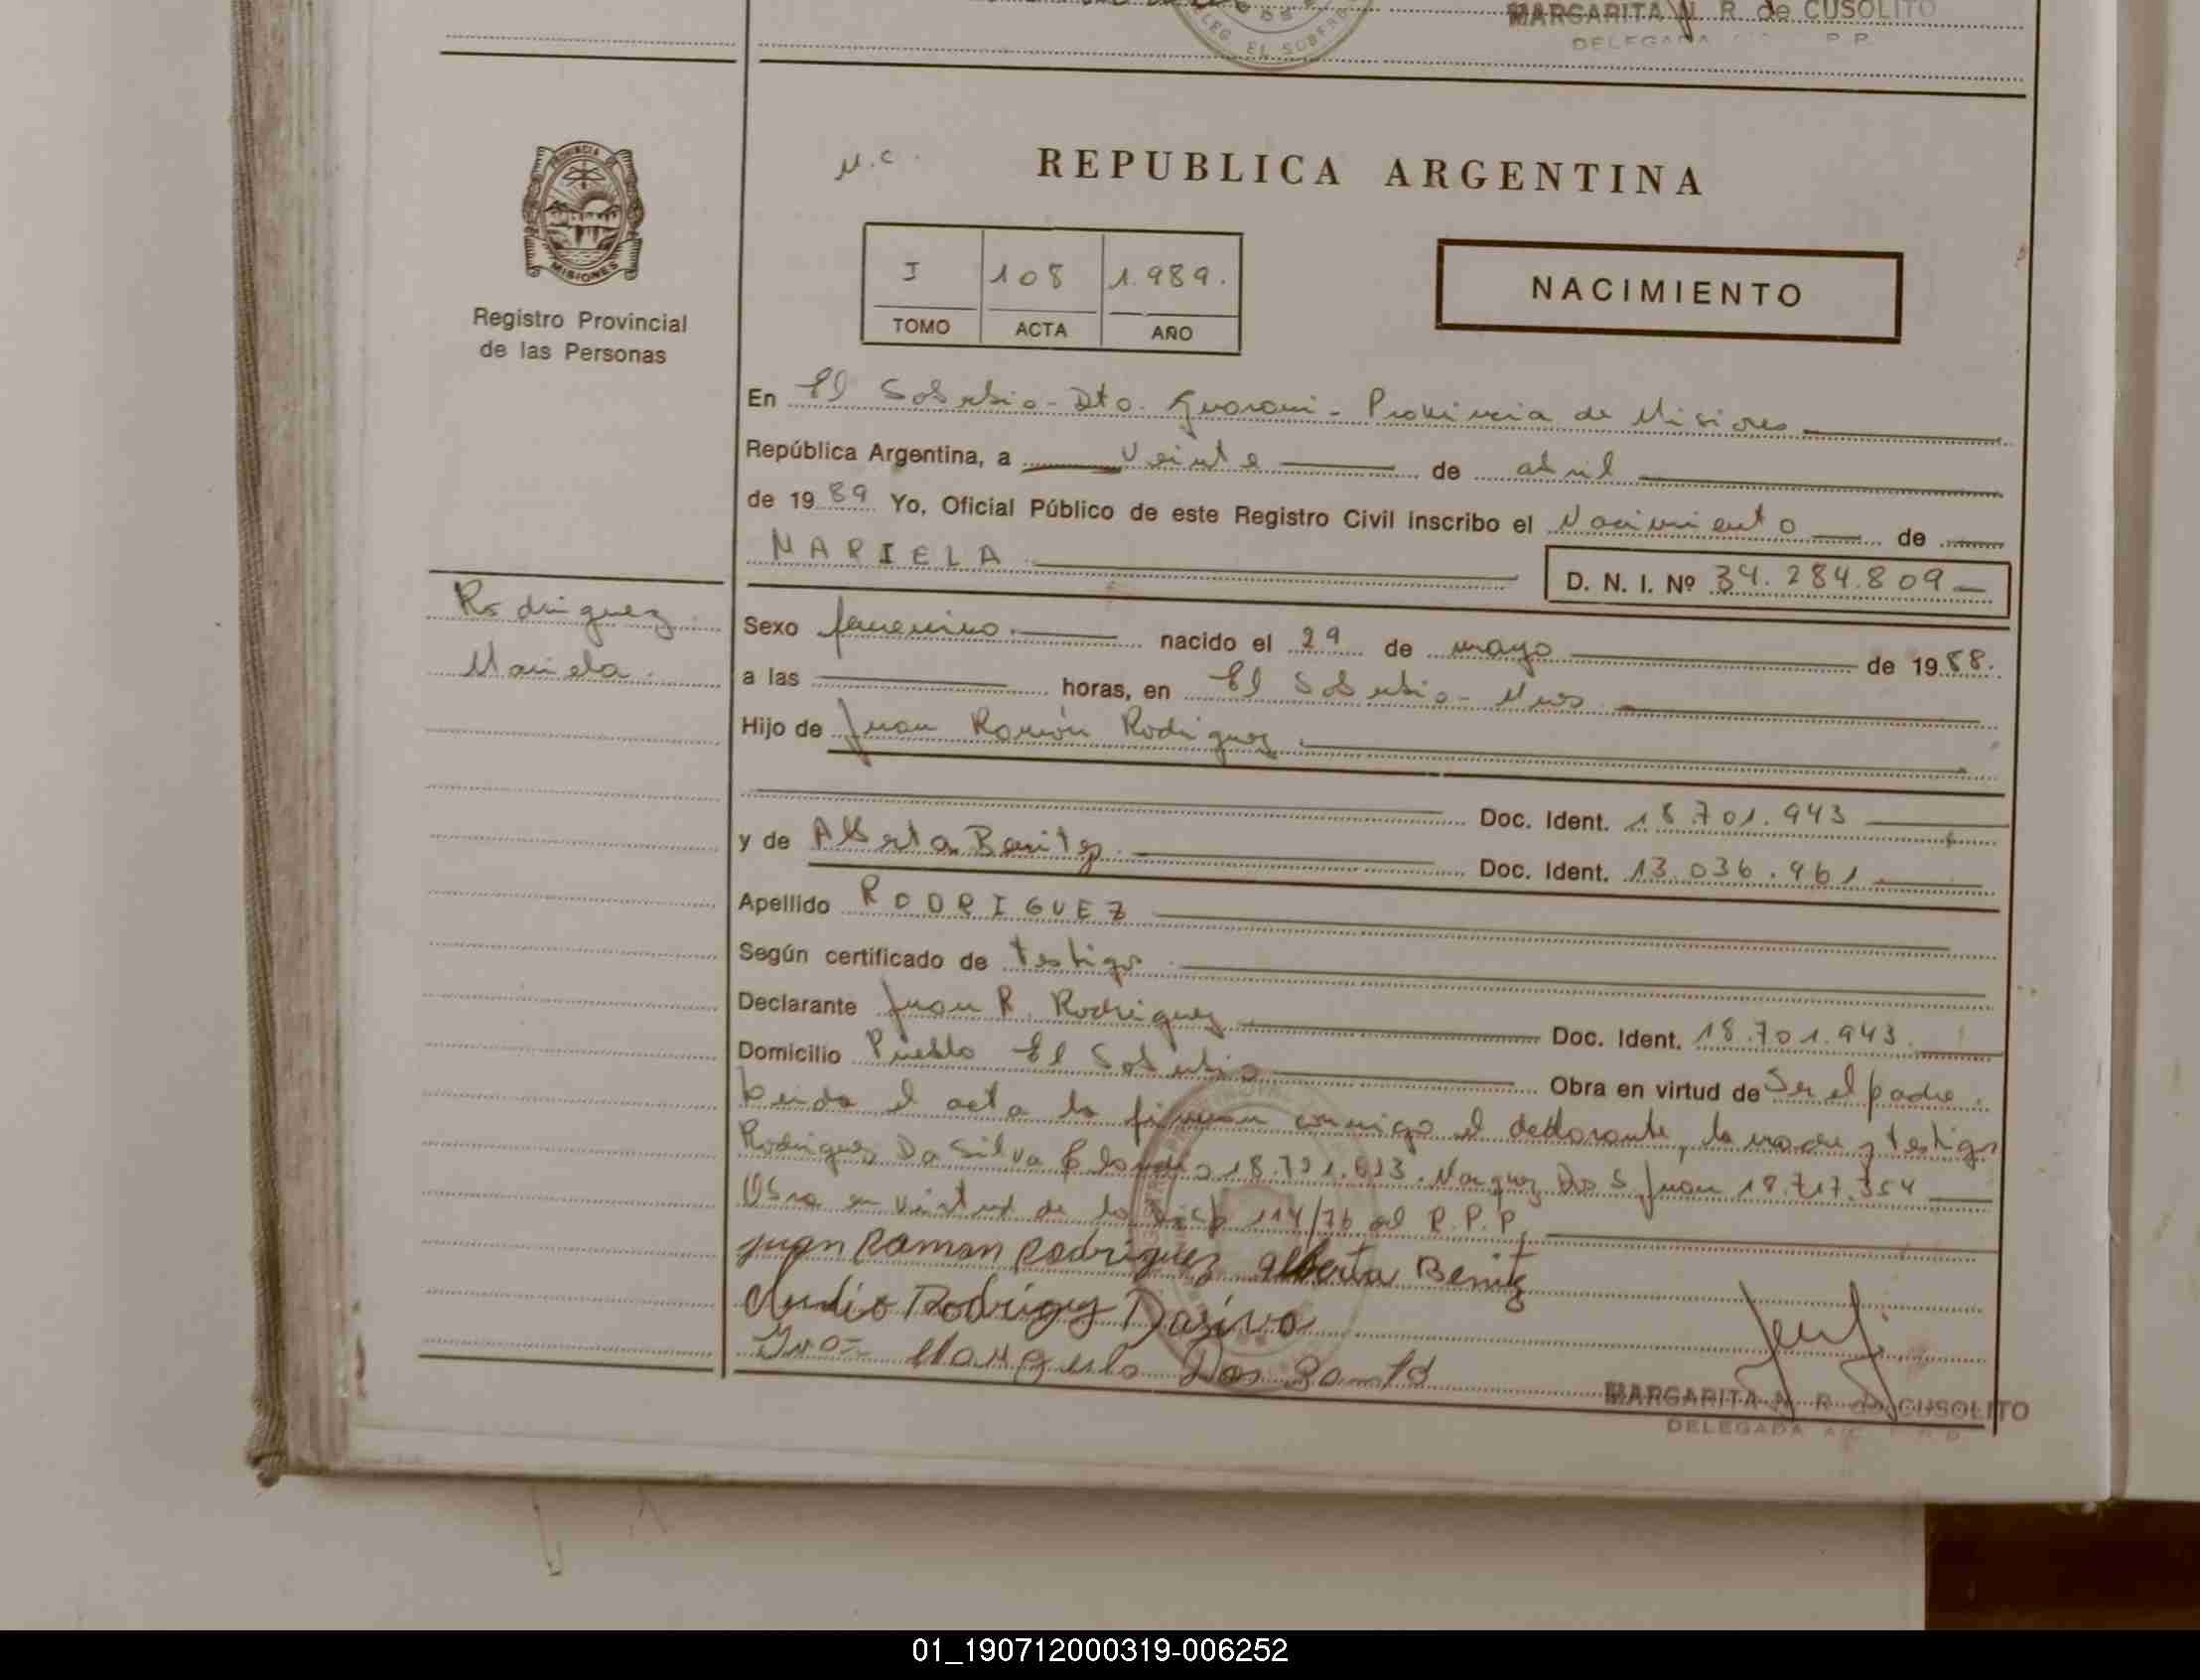 MARGARITA N. R. de CUSOLITO
DELEGADA
LEG. EL SOBERBIO
PROVINCIA DE
MISIONES
Registro Provincial
de las Personas
Rodriguez
Mariela.
N.C.
REPUBLICA ARGENTINA
I 108 1.989.
TOMO ACTA AÑO
NACIMIENTO
En El Soberbio - Dto. Guarani - Provincia de Misiones
República Argentina, a veinte de abril
de 1989 Yo, Oficial Público de este Registro Civil inscribo el Nacimiento de
MARIELA
D. N. I. Nº 34.284.809
Sexo femenino. nacido el 29 de mayo de 1988.
a las horas, en El Soberbio - Mnes.
Hijo de Juan Ramón Rodriguez
Doc. Ident. 18.701.943
y de Alberta Benitez. Doc. Ident. 13.036.961
Apellido RODRIGUEZ
Según certificado de testigos
Declarante Juan R. Rodriguez Doc. Ident. 18.701.943.
Domicilio Pueblo El Soberbio Obra en virtud de Ser el padre.
Leida el acta la firman conmigo el declarante, la madre y testigos
Rodriguez Da Silva Claudio Dos S. Juan
Obra en virtud de la Disp 114/76 del R.P.P.
juan Ramon Rodriguez alberta Benitez
Claudio Rodriguez Dasilva
Dos
MARGARITA N. R. de CUSOLITO
DELEGADA
01_190712000319-006252